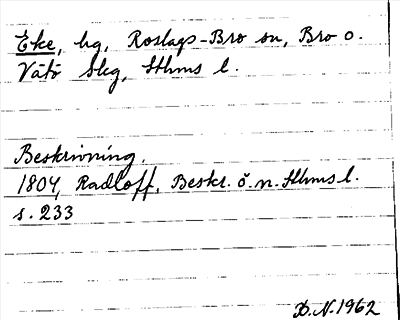 Eke, hg, Roslags-Bro sn, Bro o.
Vätö skg, Sthms l.
Beskrivning.
1804, Radloff, Beskr. ö. n. Sthms l.
s. 233
D.N. 1962